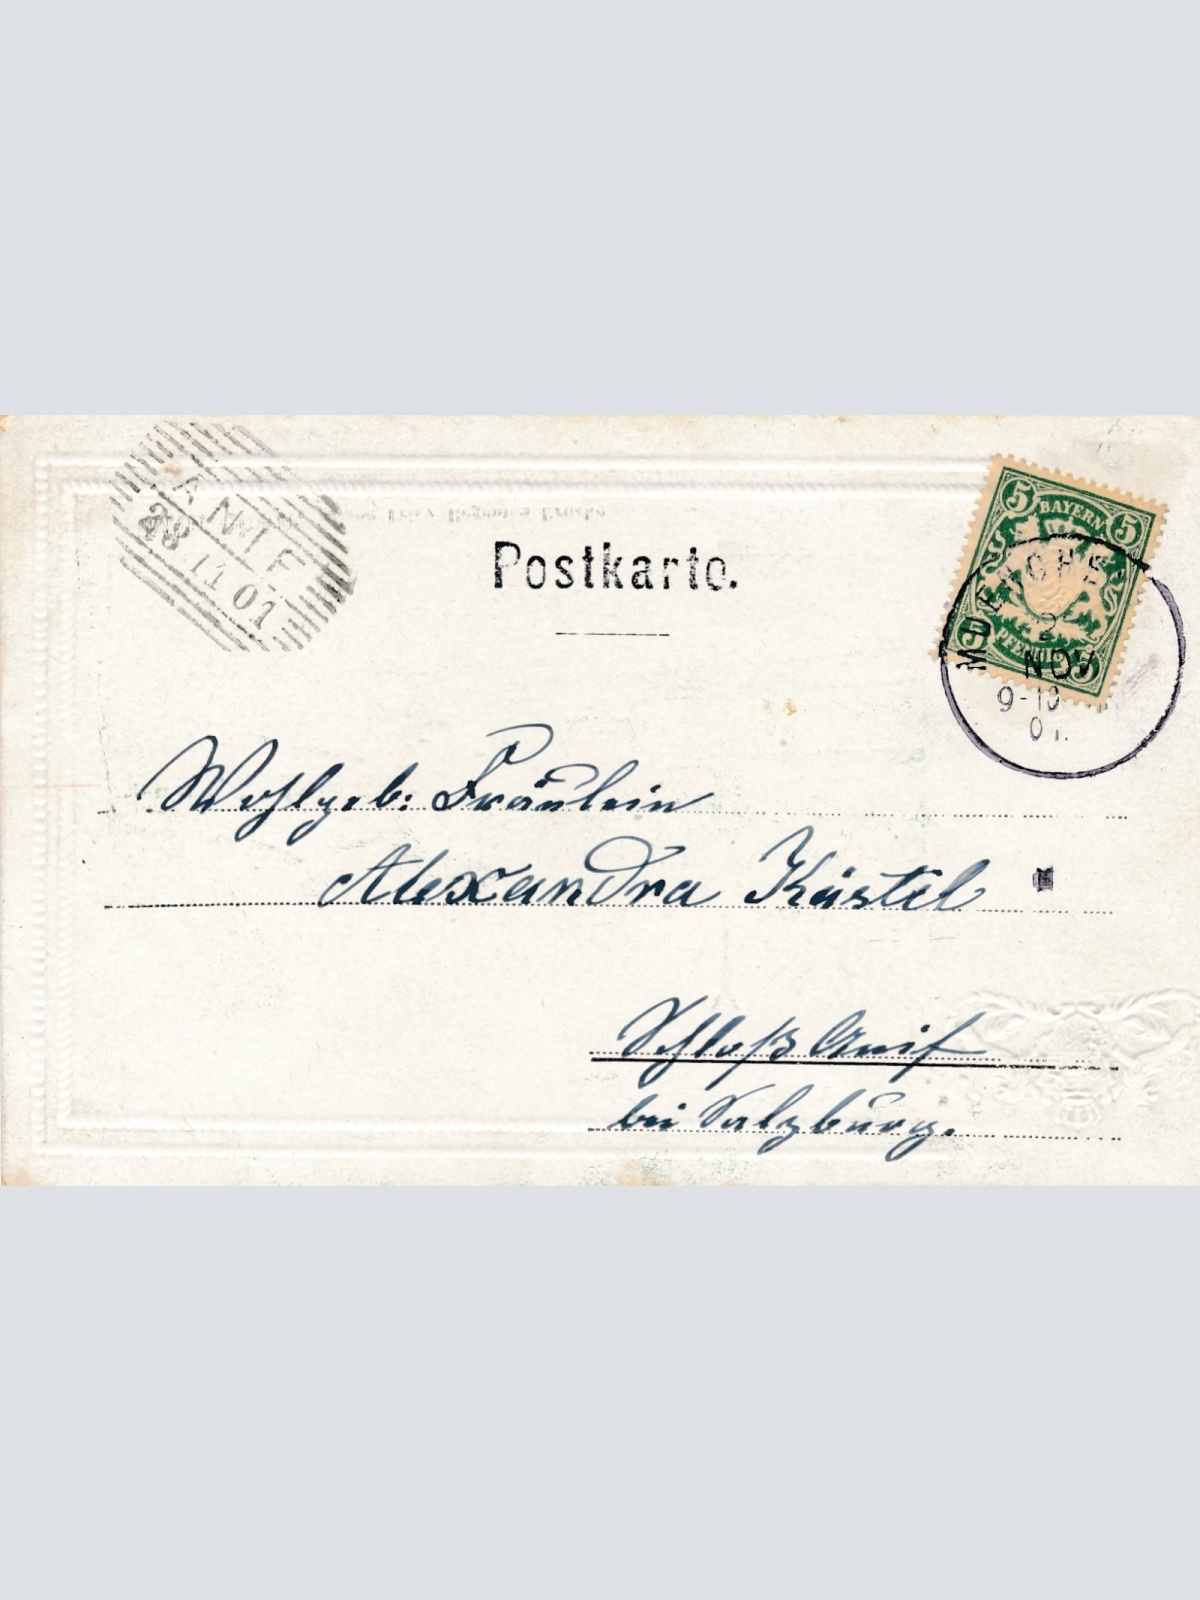 ANIF
28 11 01
Postkarte.
5 BAYERN 5
MUENCHEN
2
NOV
9-10
01.
Wohlgeb: Fräulein
Alexandra Kästel
Schloß Anif
bei Salzburg.